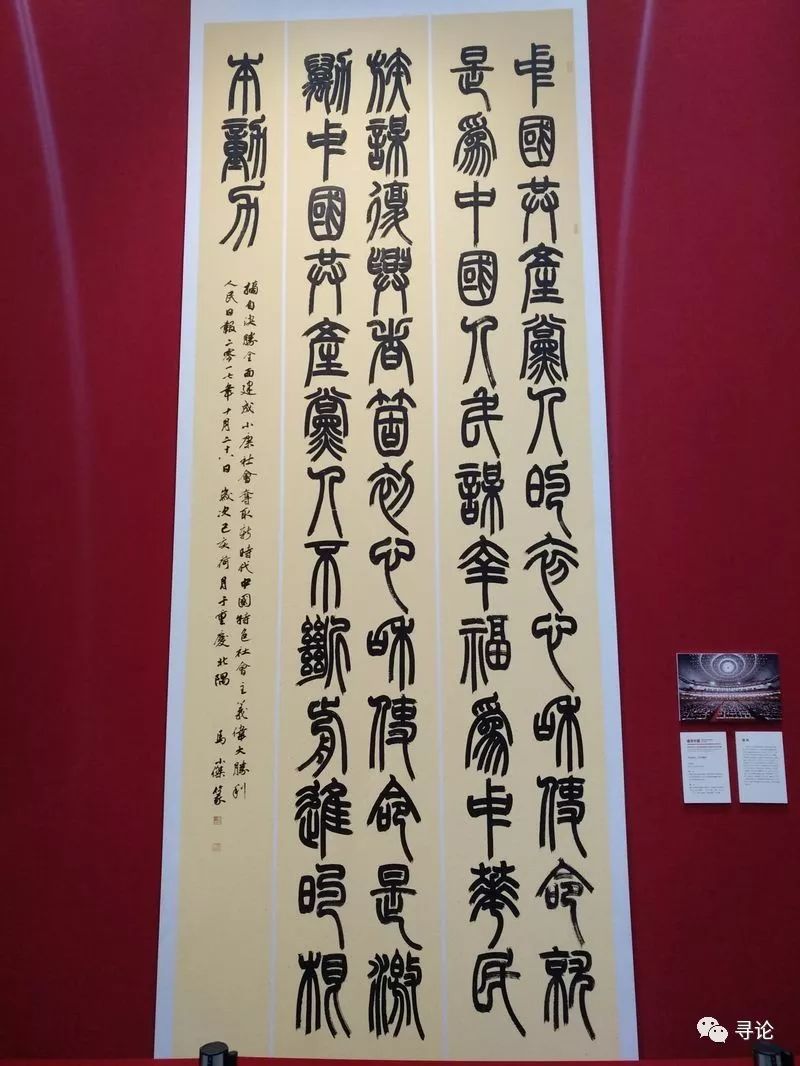 中國共產黨人的初心和使命就
是爲中國人民謀幸福爲中華民
族謀復興者箇初心和使命是激
勵中國共產黨人不斷前進的根
本動力
摘自決勝全面建成小康社會奪取新時代中國特色社會主義偉大勝利
人民日報二零一七年十月二十八日 歲次己亥荷月于重慶北隅 馬小傑篆
寻论